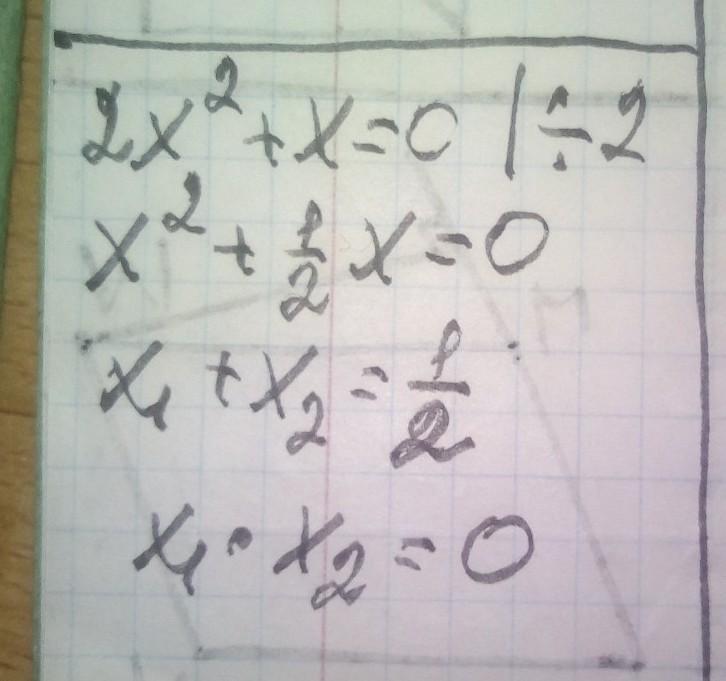 2x² + x = 0 | ÷ 2
x² + 1/2 x = 0
x₁ + x₂ = 1/2
x₁ · x₂ = 0